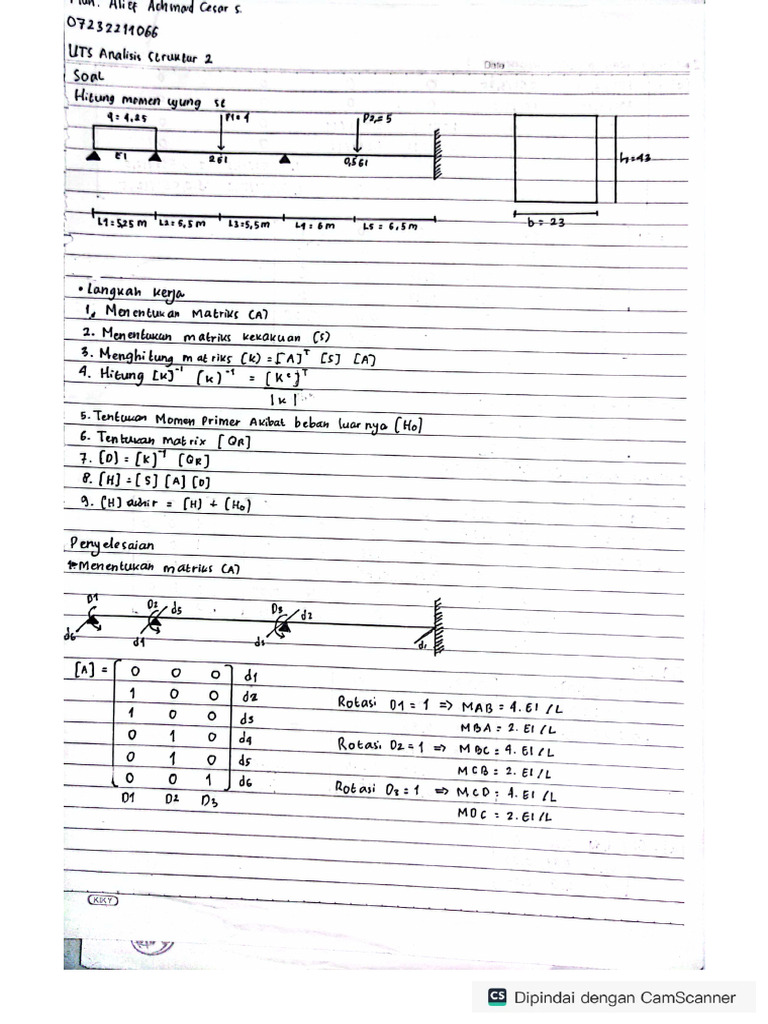 Muh. Alief Achmad Cesar S.
07232211066
UTS Analisis Struktur 2
Date
Soal
Hitung momen ujung
q = 4.25
P1 = 4
P2 = 5
EI
2EI
0,5EI
h = 43
L1 = 5,25 m
L2 = 5,5 m
L3 = 5,5 m
L4 = 6 m
L5 = 6,5 m
b = 23
• Langkah kerja
1. Menentukan Matriks (A)
2. Menentukan matriks kekakuan (S)
3. Menghitung matriks (K) = [A]ᵀ [S] [A]
4. Hitung [K]⁻¹ (K)⁻¹ = [Kᶜ]ᵀ
|K|
5. Tentukan Momen Primer Akibat beban luarnya [Ho]
6. Tentukan matrix [QR]
7. [D] = [K]⁻¹ [QR]
8. [H] = [S] [A] [D]
9. [H] akhir = [H] + [Ho]
Penyelesaian
Menentukan matriks (A)
D1
D2
d5
D3
d2
d6
d4
d3
d1
[A] =
0 0 0 d1
1 0 0 d2
1 0 0 d3
0 1 0 d4
0 1 0 d5
0 0 1 d6
D1 D2 D3
Rotasi D1 = 1 => MAB = 4.EI/L
MBA = 2.EI/L
Rotasi D2 = 1 => MBC = 4.EI/L
MCB = 2.EI/L
Rotasi D3 = 1 => MCD = 4.EI/L
MDC = 2.EI/L
KIKY
CS Dipindai dengan CamScanner